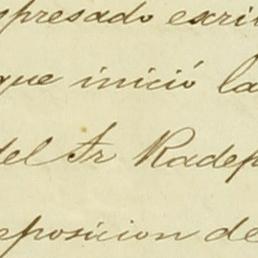 xpresado escri
que inició la
del Sr Radep
eposicion de